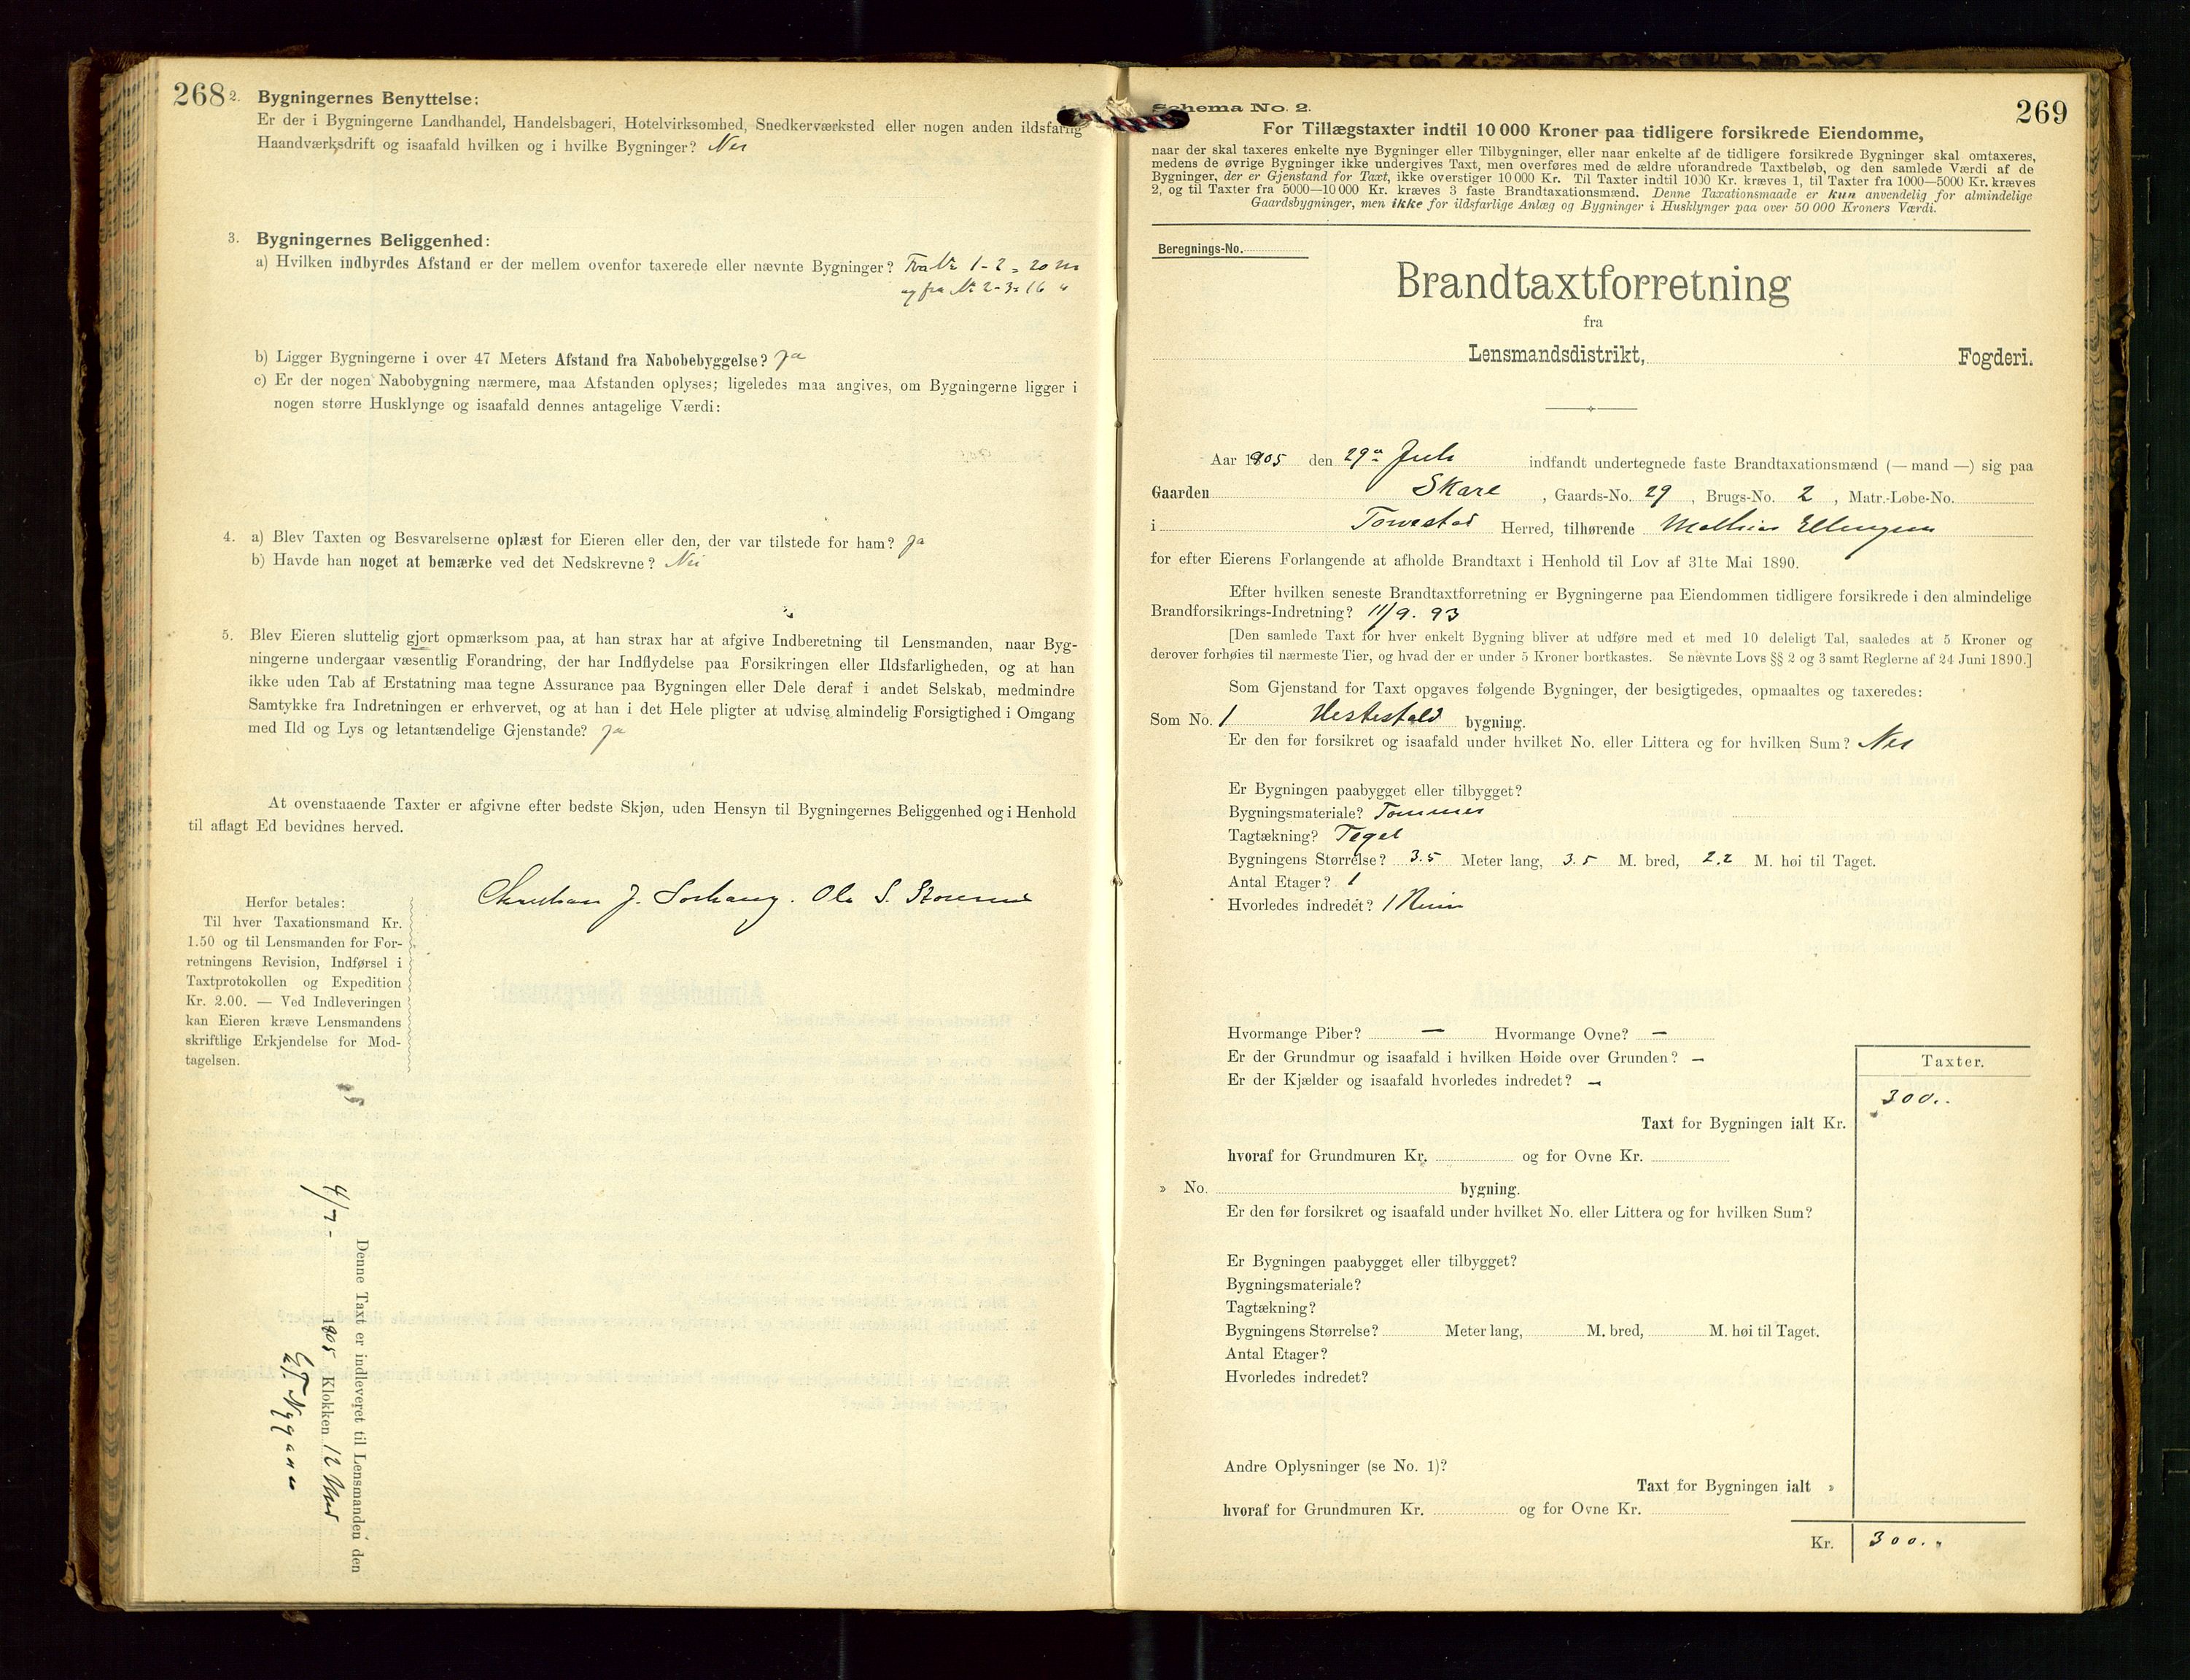 268
2. Bygningernes Benyttelse:
Er der i Bygningerne Landhandel, Handelsbageri, Hotelvirksomhed, Snedkerværksted eller nogen anden ildsfarlig
Haandværksdrift og isaafald hvilken og i hvilke Bygninger? Nei
3. Bygningernes Beliggenhed:
a) Hvilken indbyrdes Afstand er der mellem ovenfor taxerede eller nævnte Bygninger? Fra Nr 1-2 = 20 m
og fra Nr 2-3 = 16 "
b) Ligger Bygningerne i over 47 Meters Afstand fra Nabobebyggelse? Ja
c) Er der nogen Nabobygning nærmere, maa Afstanden oplyses; ligeledes maa angives, om Bygningerne ligger i
nogen større Husklynge og isaafald dennes antagelige Værdi:
4. a) Blev Taxten og Besvarelserne oplæst for Eieren eller den, der var tilstede for ham? Ja
b) Havde han noget at bemærke ved det Nedskrevne? Nei
5. Blev Eieren sluttelig gjort opmærksom paa, at han strax har at afgive Indberetning til Lensmanden, naar Byg-
ningerne undergaar væsentlig Forandring, der har Indflydelse paa Forsikringen eller Ildsfarligheden, og at han
ikke uden Tab af Erstatning maa tegne Assurance paa Bygningen eller Dele deraf i andet Selskab, medmindre
Samtykke fra Indretningen er erhvervet, og at han i det Hele pligter at udvise almindelig Forsigtighed i Omgang
med Ild og Lys og letantændelige Gjenstande? Ja
At ovenstaaende Taxter er afgivne efter bedste Skjøn, uden Hensyn til Bygningernes Beliggenhed og i Henhold
til aflagt Ed bevidnes herved.
Ola S.
Herfor betales:
Til hver Taxationsmand Kr.
1.50 og til Lensmanden for For-
retningens Revision, Indførsel i
Taxtprotokollen og Expedition
Kr. 2.00. — Ved Indleveringen
kan Eieren kræve Lensmandens
skriftlige Erkjendelse for Mod-
tagelsen.
Denne Taxt er indleveret til Lensmanden den
4/7 - 1905 Klokken 12
269
Schema No. 2.
For Tillægstaxter indtil 10 000 Kroner paa tidligere forsikrede Eiendomme,
naar der skal taxeres enkelte nye Bygninger eller Tilbygninger, eller naar enkelte af de tidligere forsikrede Bygninger skal omtaxeres,
medens de øvrige Bygninger ikke undergives Taxt, men overføres med de ældre uforandrede Taxtbeløb, og den samlede Værdi af de
Bygninger, der er Gjenstand for Taxt, ikke overstiger 10 000 Kr. Til Taxter indtil 1000 Kr. kræves 1, til Taxter fra 1000—5000 Kr. kræves
2, og til Taxter fra 5000—10 000 Kr. kræves 3 faste Brandtaxationsmænd. Denne Taxationsmaade er kun anvendelig for almindelige
Gaardsbygninger, men ikke for ildsfarlige Anlæg og Bygninger i Husklynger paa over 50 000 Kroners Værdi.
Beregnings-No.
Brandtaxtforretning
fra
Lensmandsdistrikt, Fogderi.
Aar 1905 den 29de Juli indfandt undertegnede faste Brandtaxationsmænd (— mand —) sig paa
Gaarden Skare, Gaards-No. 29, Brugs-No. 2, Matr.-Løbe-No.
i Torvestad Herred, tilhørende Mathias Ellingsen
for efter Eierens Forlangende at afholde Brandtaxt i Henhold til Lov af 31te Mai 1890.
Efter hvilken seneste Brandtaxtforretning er Bygningerne paa Eiendommen tidligere forsikrede i den almindelige
Brandforsikrings-Indretning? 11/9. 93
[Den samlede Taxt for hver enkelt Bygning bliver at udføre med et med 10 deleligt Tal, saaledes at 5 Kroner og
derover forhøies til nærmeste Tier, og hvad der er under 5 Kroner bortkastes. Se nævnte Lovs §§ 2 og 3 samt Reglerne af 24 Juni 1890.]
Som Gjenstand for Taxt opgaves følgende Bygninger, der besigtigedes, opmaaltes og taxeredes:
Som No. 1 Hestestald bygning.
Er den før forsikret og isaafald under hvilket No. eller Littera og for hvilken Sum? Nei
Er Bygningen paabygget eller tilbygget?
Bygningsmateriale? Tømmer
Tagtækning? Tegel
Bygningens Størrelse? 3.5 Meter lang, 3.5 M. bred, 2.2 M. høi til Taget.
Antal Etager? 1
Hvorledes indredet? 1 Rum
Hvormange Piber? — Hvormange Ovne? —
Er der Grundmur og isaafald i hvilken Høide over Grunden? —
Er der Kjælder og isaafald hvorledes indredet? —
Taxter.
Taxt for Bygningen ialt Kr. 300..
hvoraf for Grundmuren Kr. og for Ovne Kr.
» No. bygning.
Er den før forsikret og isaafald under hvilket No. eller Littera og for hvilken Sum?
Er Bygningen paabygget eller tilbygget?
Bygningsmateriale?
Tagtækning?
Bygningens Størrelse? Meter lang, M. bred, M. høi til Taget.
Antal Etager?
Hvorledes indredet?
Andre Oplysninger (se No. 1)?
Taxt for Bygningen ialt »
hvoraf for Grundmuren Kr. og for Ovne Kr.
Kr. 300..